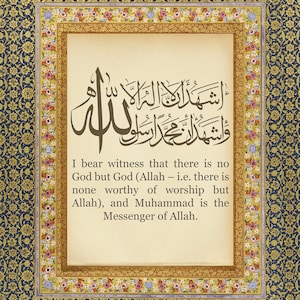 أشهد أن لا إله إلا الله
وأشهد أن محمدا رسول
I bear witness that there is no
God but God (Allah – i.e. there is
none worthy of worship but
Allah), and Muhammad is the
Messenger of Allah.